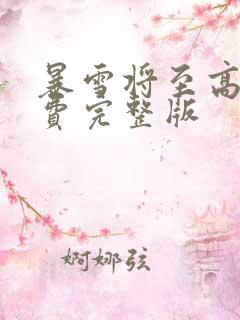 暴雪将至高
费完整版
婀娜弦